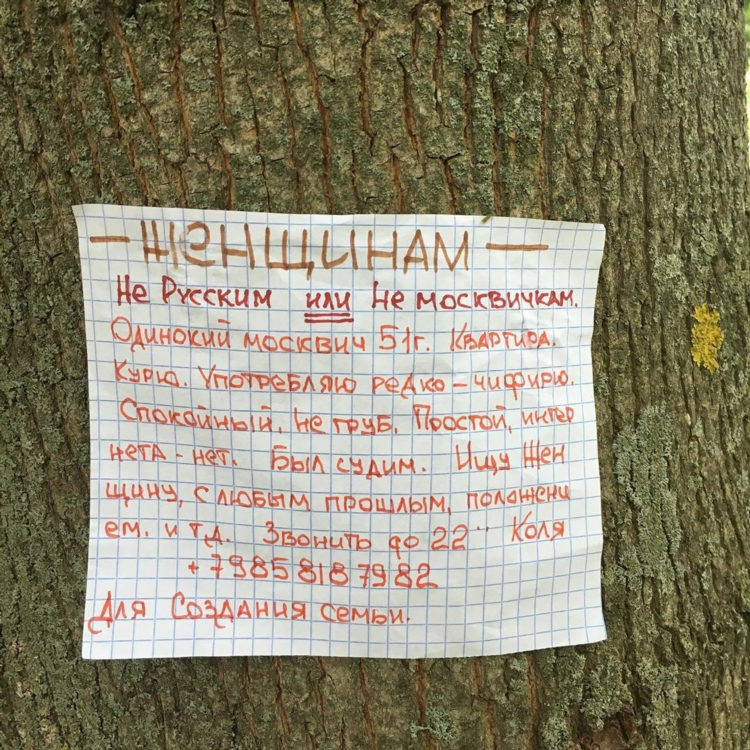 — ЖЕНЩИНАМ —
Не Русским или Не москвичкам.
Одинокий москвич 51г. Квартира.
Курю. Употребляю редко – чифирю.
Спокойный. Не груб. Простой, интер
нета – нет. Был судим. Ищу Жен
щину, с любым прошлым, положени
ем. и т.д. Звонить до 22" Коля
+ 7985 818 7982
Для Создания семьи.